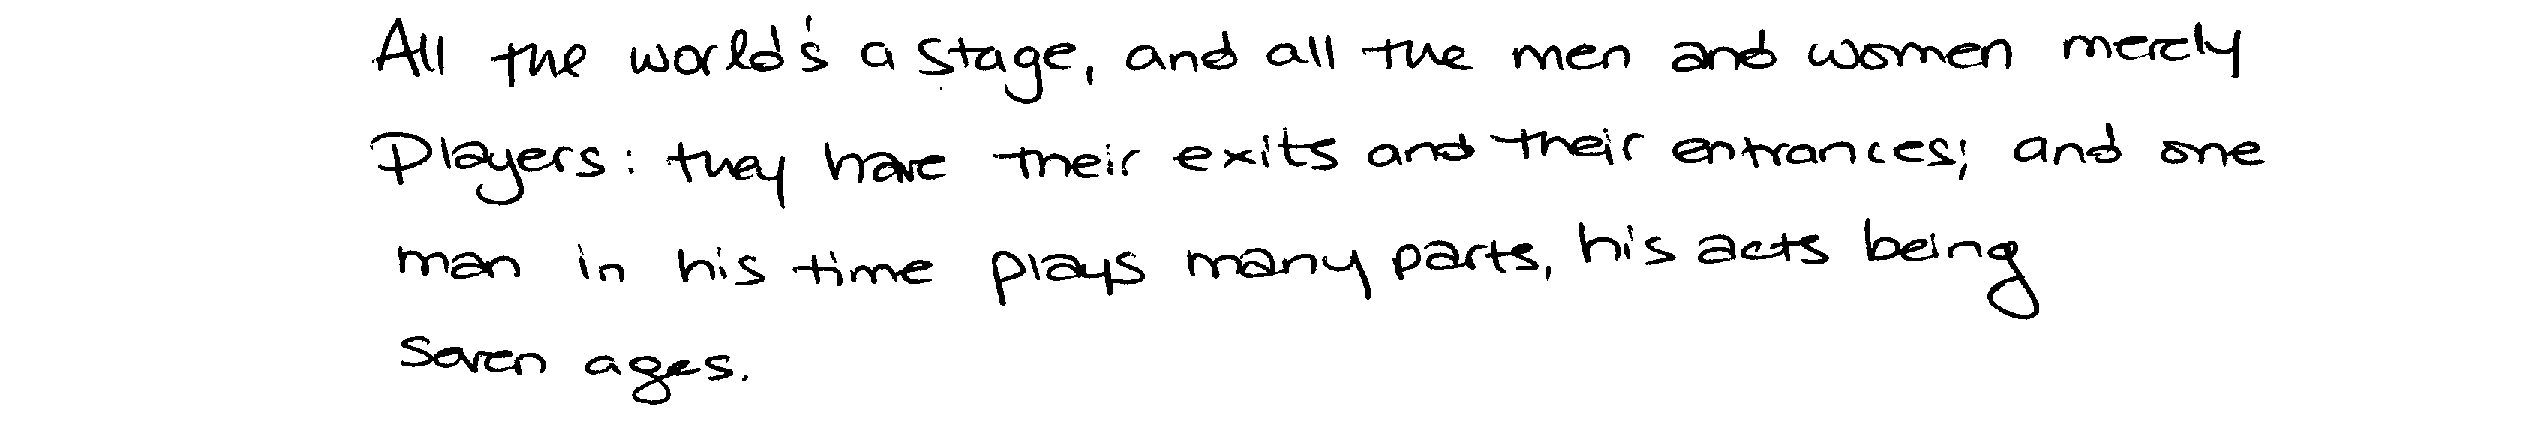 All the world's a stage, and all the men and women merely
Players: they have their exits and their entrances; and one
man in his time plays many parts, his acts being
seven ages.